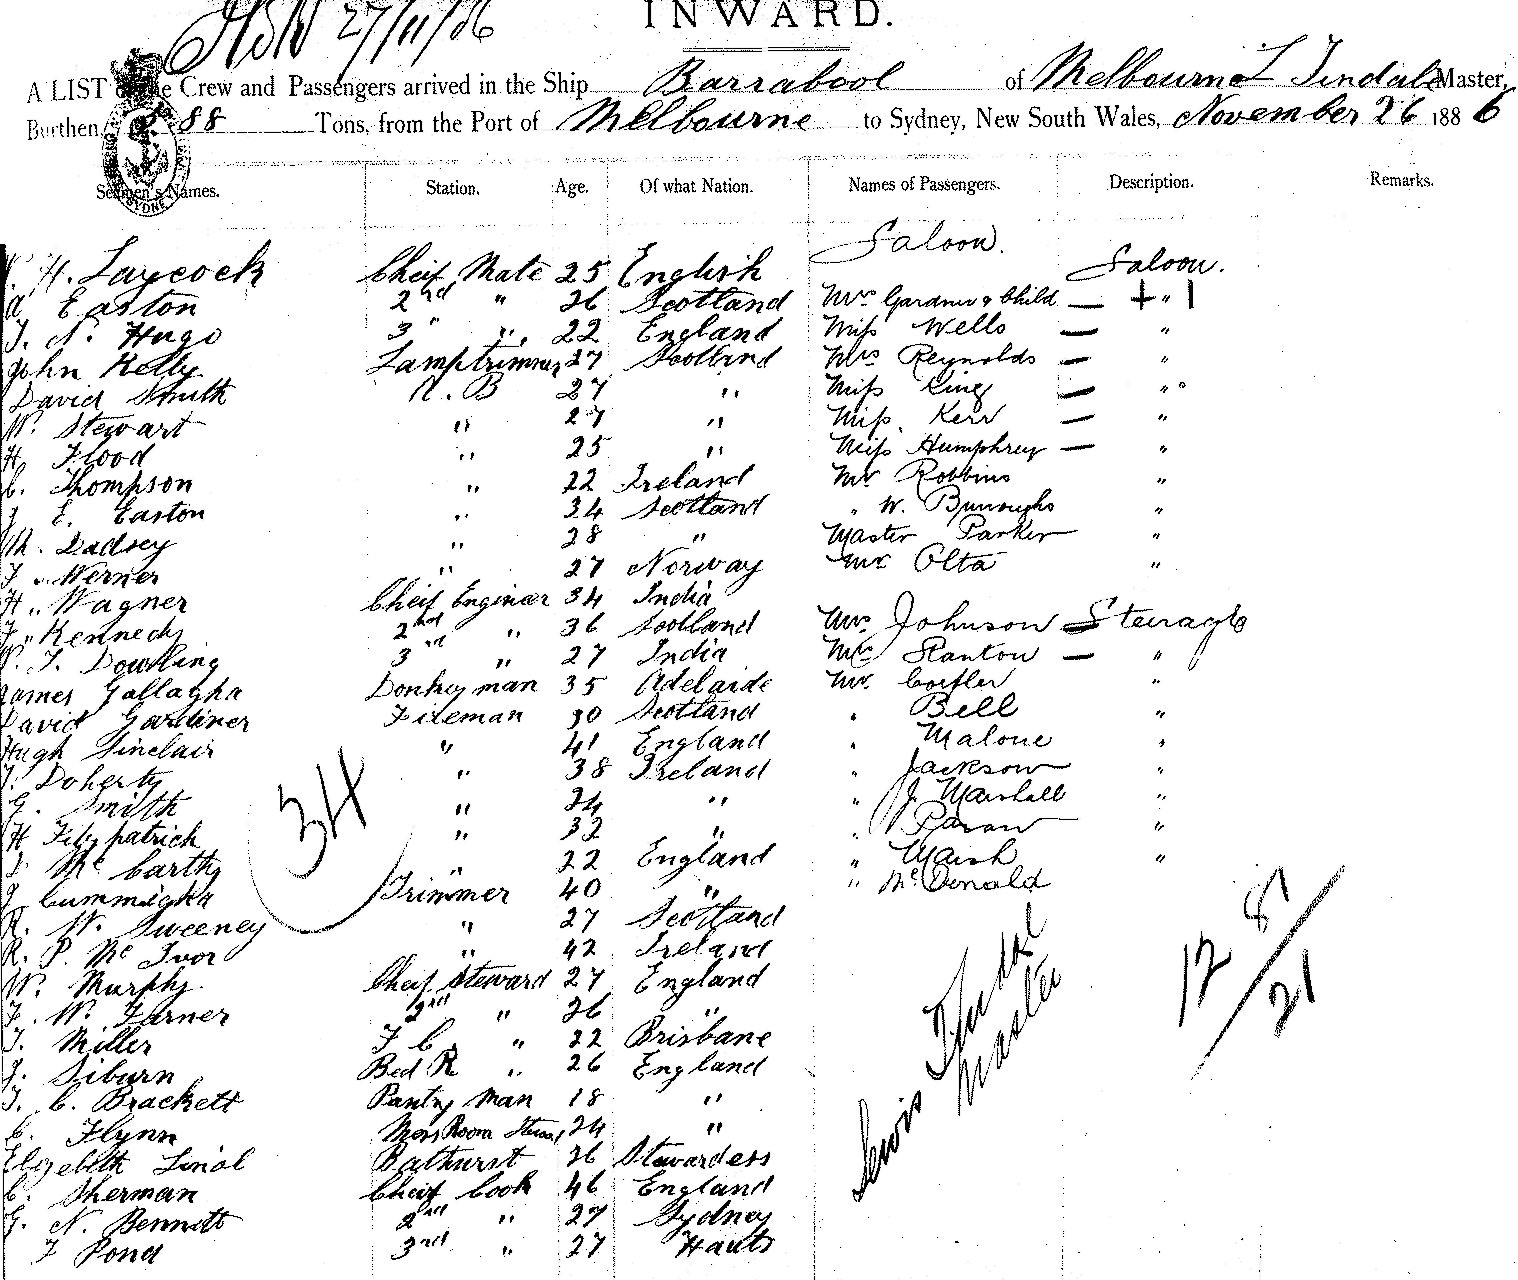 INWARD.
27/11/86
A LIST of the Crew and Passengers arrived in the Ship Barrabool of Melbourne L Tindale Master,
Burthen 88 Tons, from the Port of Melbourne to Sydney, New South Wales, November 26 1886
Seamen's Names. Station. Age. Of what Nation. Names of Passengers. Description. Remarks.
Saloon.
H. Laycock Cheif Mate 25 English Saloon.
A Easton 2nd " 26 Scotland Mrs Gardner & Child — + " 1
T. N. Hugo 3 " " 22 England Miss Wells — "
John Kelly Lamptrimmer 27 Scotland Mrs Reynolds — "
David Smith A. B 27 " Miss King — "
W. Stewart " 27 " Miss. Kerr — "
H. Flood " 25 " Miss Humphrey — "
C. Thompson " 22 Ireland Mr Robbins "
J E. Easton " 34 Scotland " W. Burroughs "
M. Dadsey " 28 " Master Parker "
F. Werner " 27 Norway Mr Olta "
H. Wagner Cheif Engineer 34 India
J. Kennedy 2nd " 36 Scotland Mrs Johnson — Steirage
W. J. Dowling 3rd " 27 India Mrs Stanton — "
James Gallagha Donkeyman 35 Adelaide Mr. "
David Gardiner Fireman 30 Scotland " Bell "
Hugh Sinclair " 41 England " Malone "
J. Doherty " 38 Ireland " Jackson "
G. Smith " 24 " " J. Marshall "
H Fitzpatrick " 32 " " "
J McCarthy " 22 England " Marsh "
J Cummigha Trimmer 40 " " McDonald
R. W. Sweeney " 27 Scotland
R. P. McIvor " 42 Ireland
W. Murphy Cheif Steward 27 England
F. W. Turner 2nd " 26 "
T. Miller F C. " 22 Brisbane
J. Siburn Bed R " 26 England
T. C. Brackett Pantry Man 18 "
C. Flynn Mess Room Steward 24 "
Elizebeth Linal Bathurst 36 Stewardess
C. Sherman Cheif Cook 46 England
G. N. Bennett 2nd " 27 Sydney
F Pond 3rd " 27 Hants
34
Lewis Tindal
Master
12 8/
21